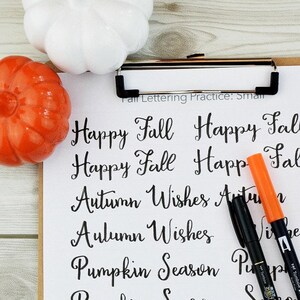 Fall Lettering Practice: Small
Happy Fall Happy Fall
Happy Fall Happy Fall
Autumn Wishes Autumn
Autumn Wishes
Pumpkin Season Pumpkin
Pumpkin Season